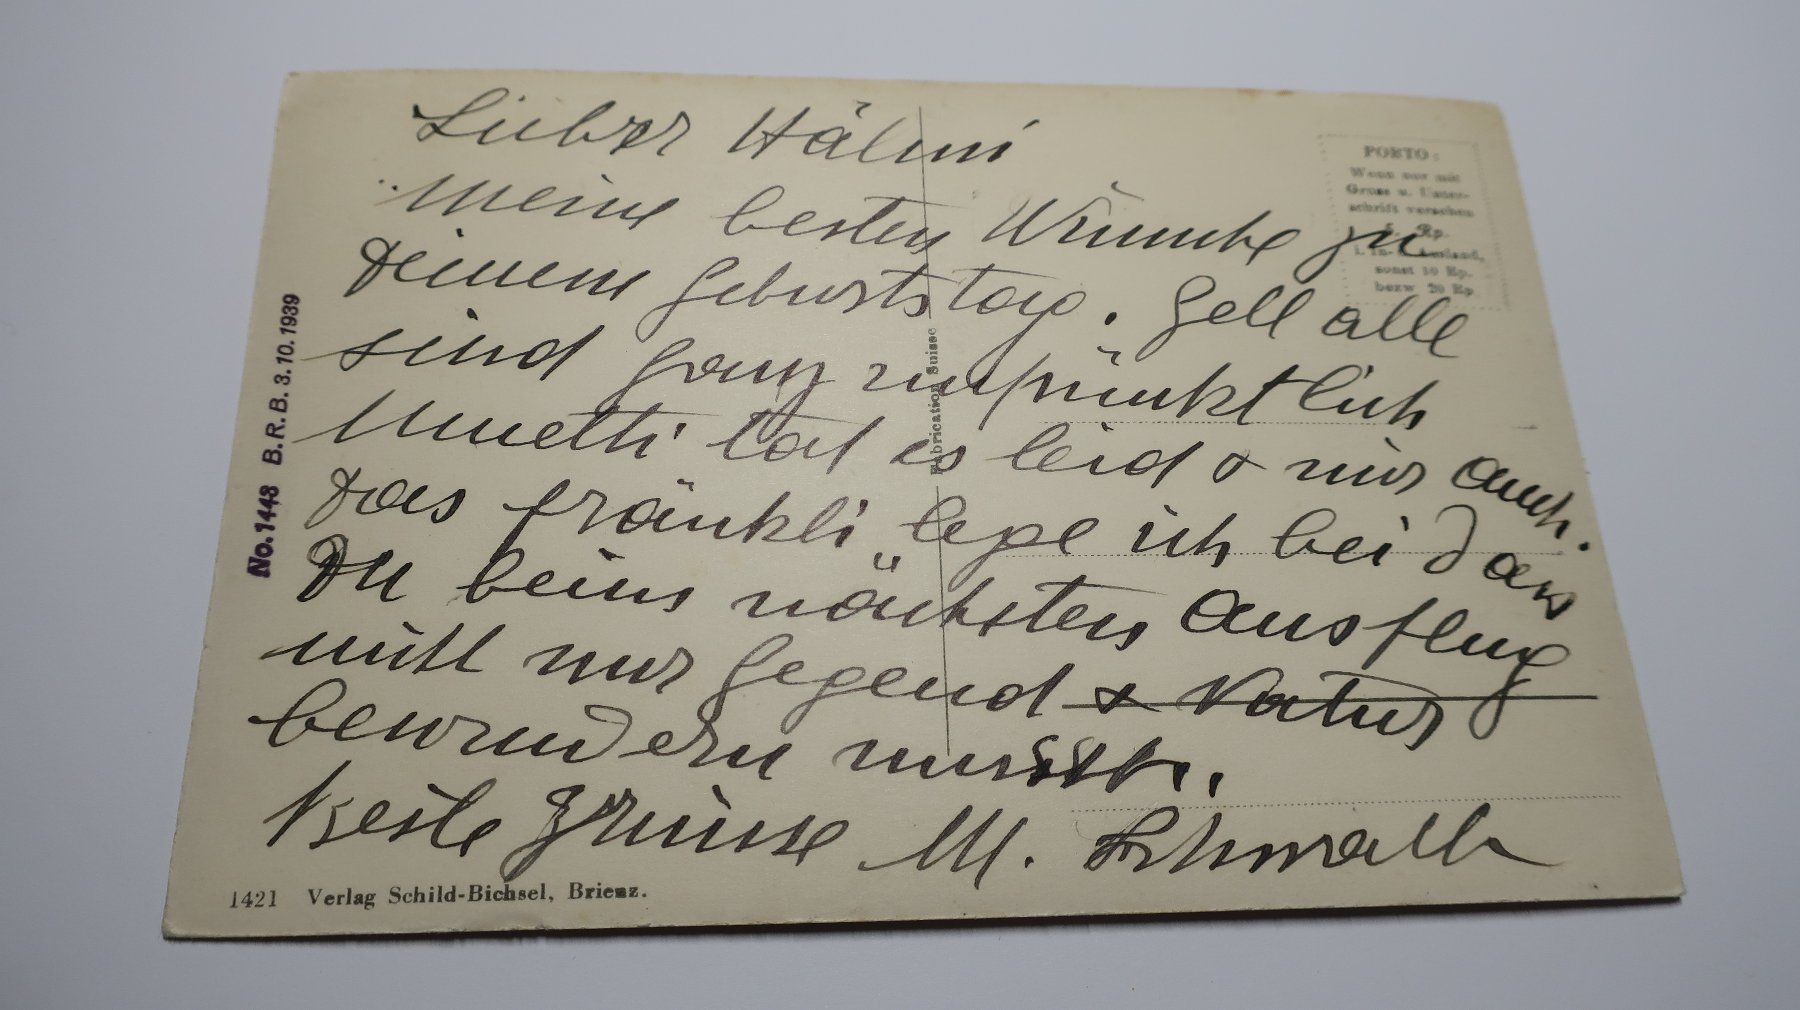 Lieber Hälmi
Meine besten Wünsche zu
Deinem Geburtstag. Gell alle
sind ganz unpünktlich
Muetti tat es leid & mir auch.
Das fränkli lege ich bei dass
Du beim nächsten Ausflug
nicht nur Gegend & Natur
bewundern musst.
Beste Grüsse M. 
PORTO:
Wenn nur mit
Gruss u. Unter-
schrift versehen
5 Rp.
i. In- u. Ausland,
sonst 10 Rp.
bezw 20 Rp
Fabrication Suisse
No. 1448 B. R. B. 3. 10. 1939
1421 Verlag Schild-Bichsel, Brienz.